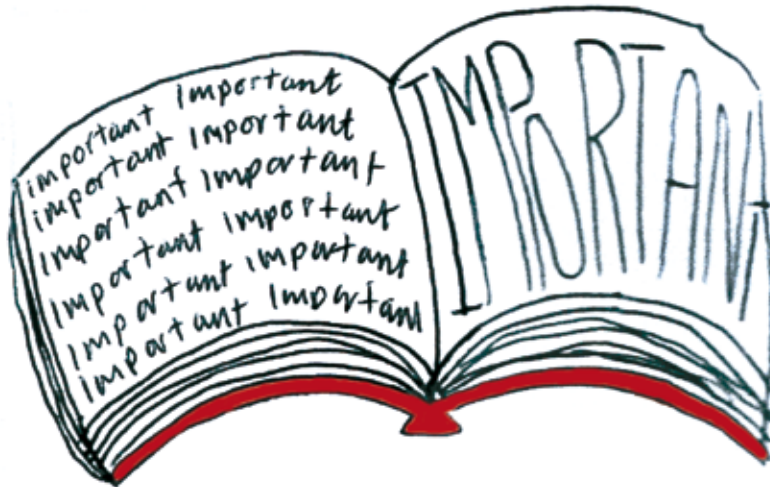 important important
important important
important important
important important
important important
important important
IMPORTANT